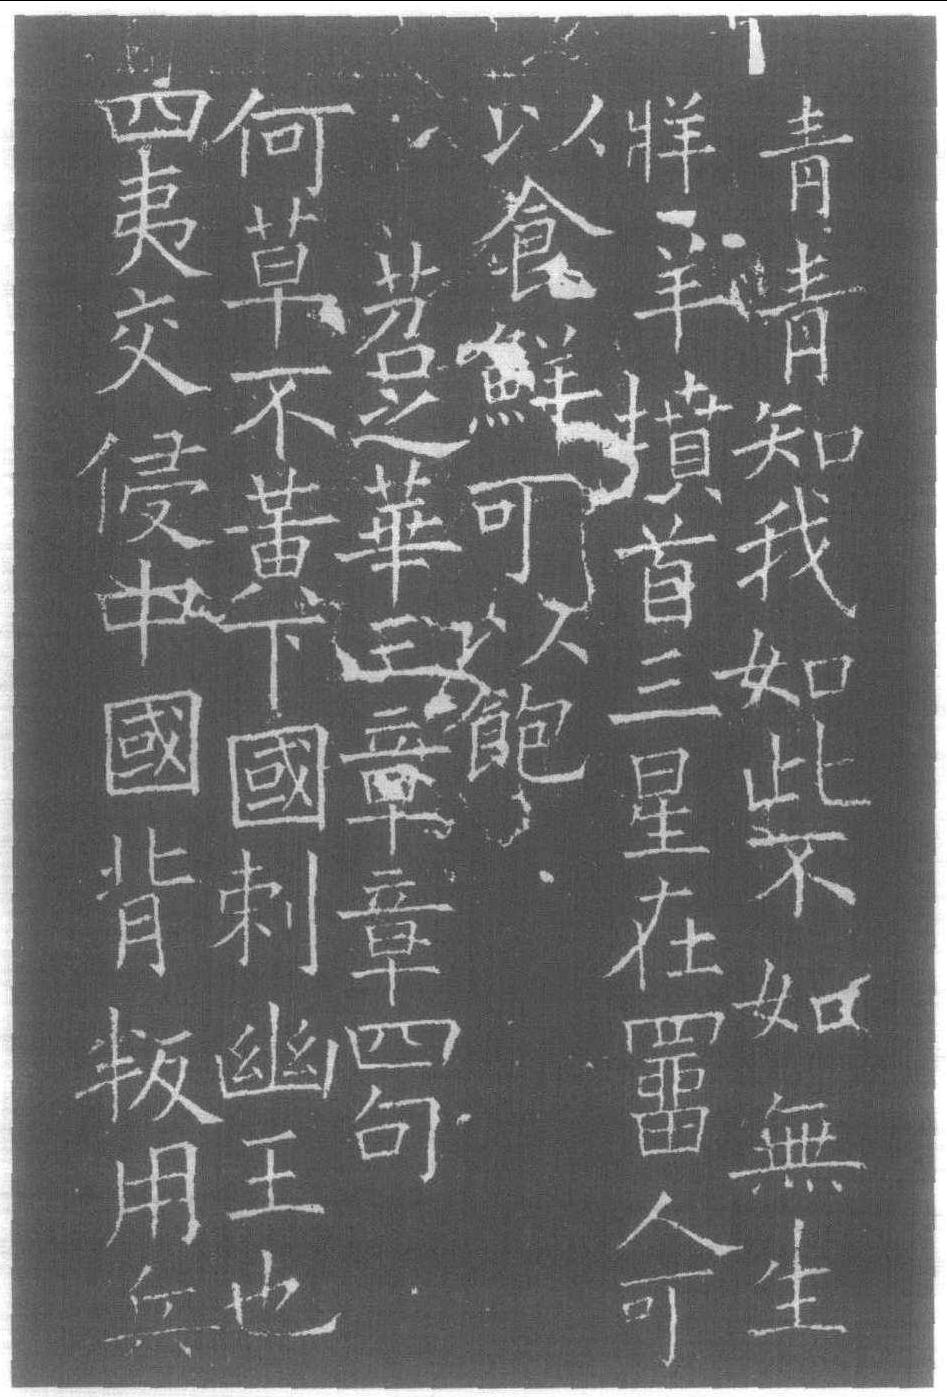 青青知我如此不如無生
牂羊墳首三星在罶人可
以食鮮可以飽
苕之華三章章四句
何草不黃下國刺幽王也
四夷交侵中國背叛用兵